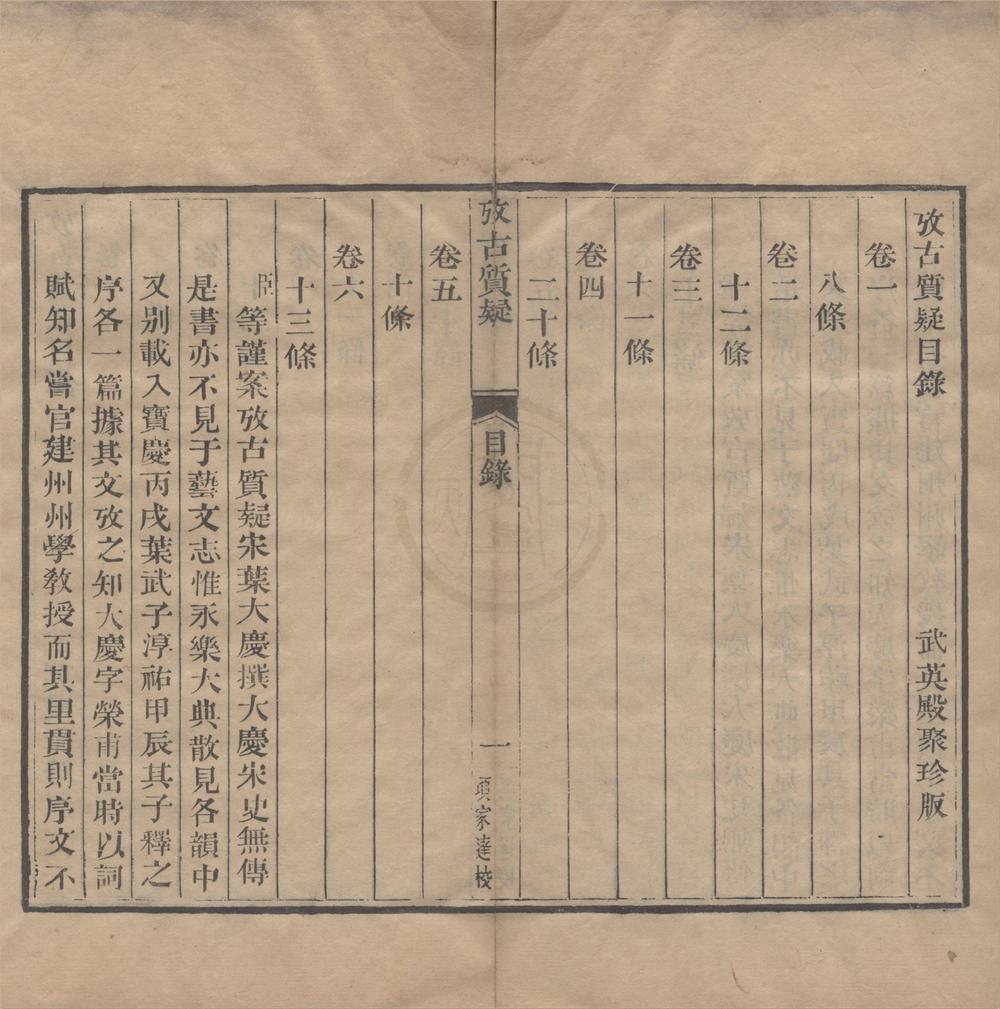 攷古質疑目錄　武英殿聚珍版
卷一
八條
卷二
十二條
卷三
十一條
卷四
二十條
攷古質疑　目錄　一　項家達校
卷五
十條
卷六
十三條
臣等謹案攷古質疑宋葉大慶撰大慶宋史無傳
是書亦不見于藝文志惟永樂大典散見各韻中
又別載入寶慶丙戌葉武子淳祐甲辰其子釋之
序各一篇據其文攷之知大慶字榮甫當時以詞
賦知名嘗官建州州學教授而其里貫則序文不